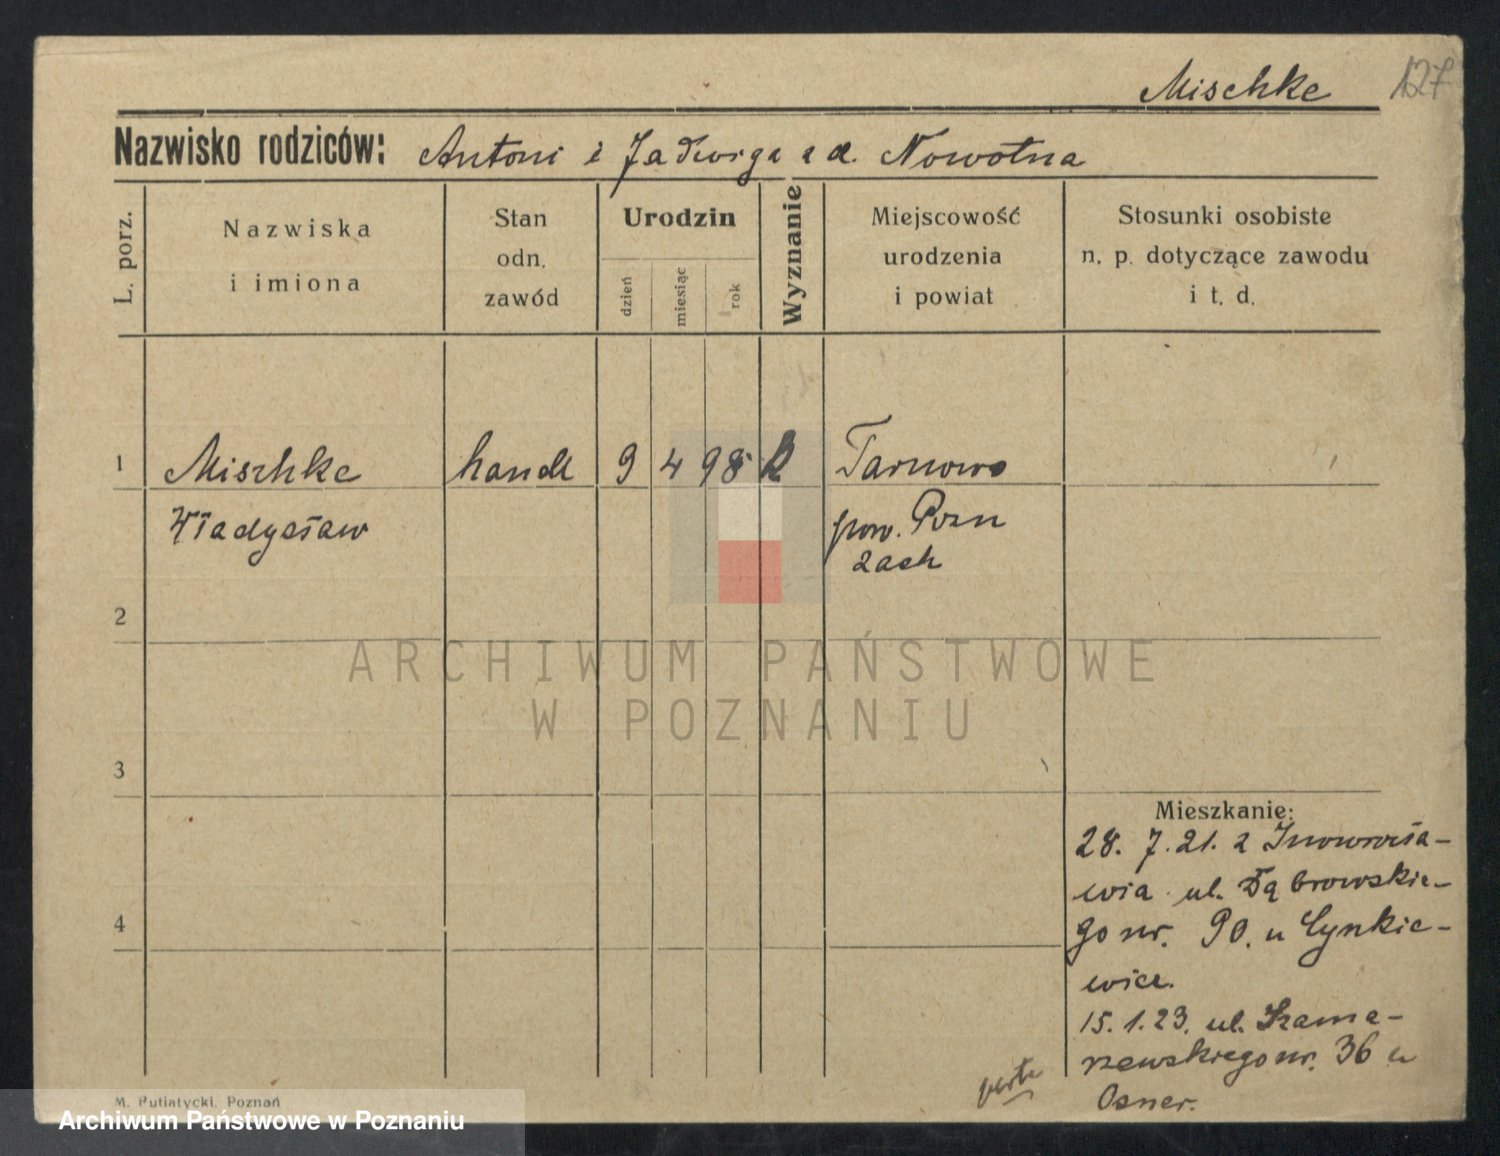 Mischke
127
Nazwisko rodziców: Antoni i Jadwiga z d. Nowotna
L. porz.
Nazwiska
i imiona
Stan
odn.
zawód
Urodzin
dzień
miesiąc
rok
Wyznanie
Miejscowość
urodzenia
i powiat
Stosunki osobiste
n. p. dotyczące zawodu
i t. d.
1 Mischke handl 9 4 98 k Tarnowo
Władysław pow. Pozn
zach
2
ARCHIWUM PAŃSTWOWE
W POZNANIU
3
Mieszkanie:
28. 7. 21. z Inowrocła-
wia ul. Dąbrowskie-
4
go nr. 90. u Cynkie-
wicz.
15. 1. 23. ul. Szama-
rzewskiego nr. 36 u
Osner.
M. Putiatycki, Poznań
Archiwum Państwowe w Poznaniu